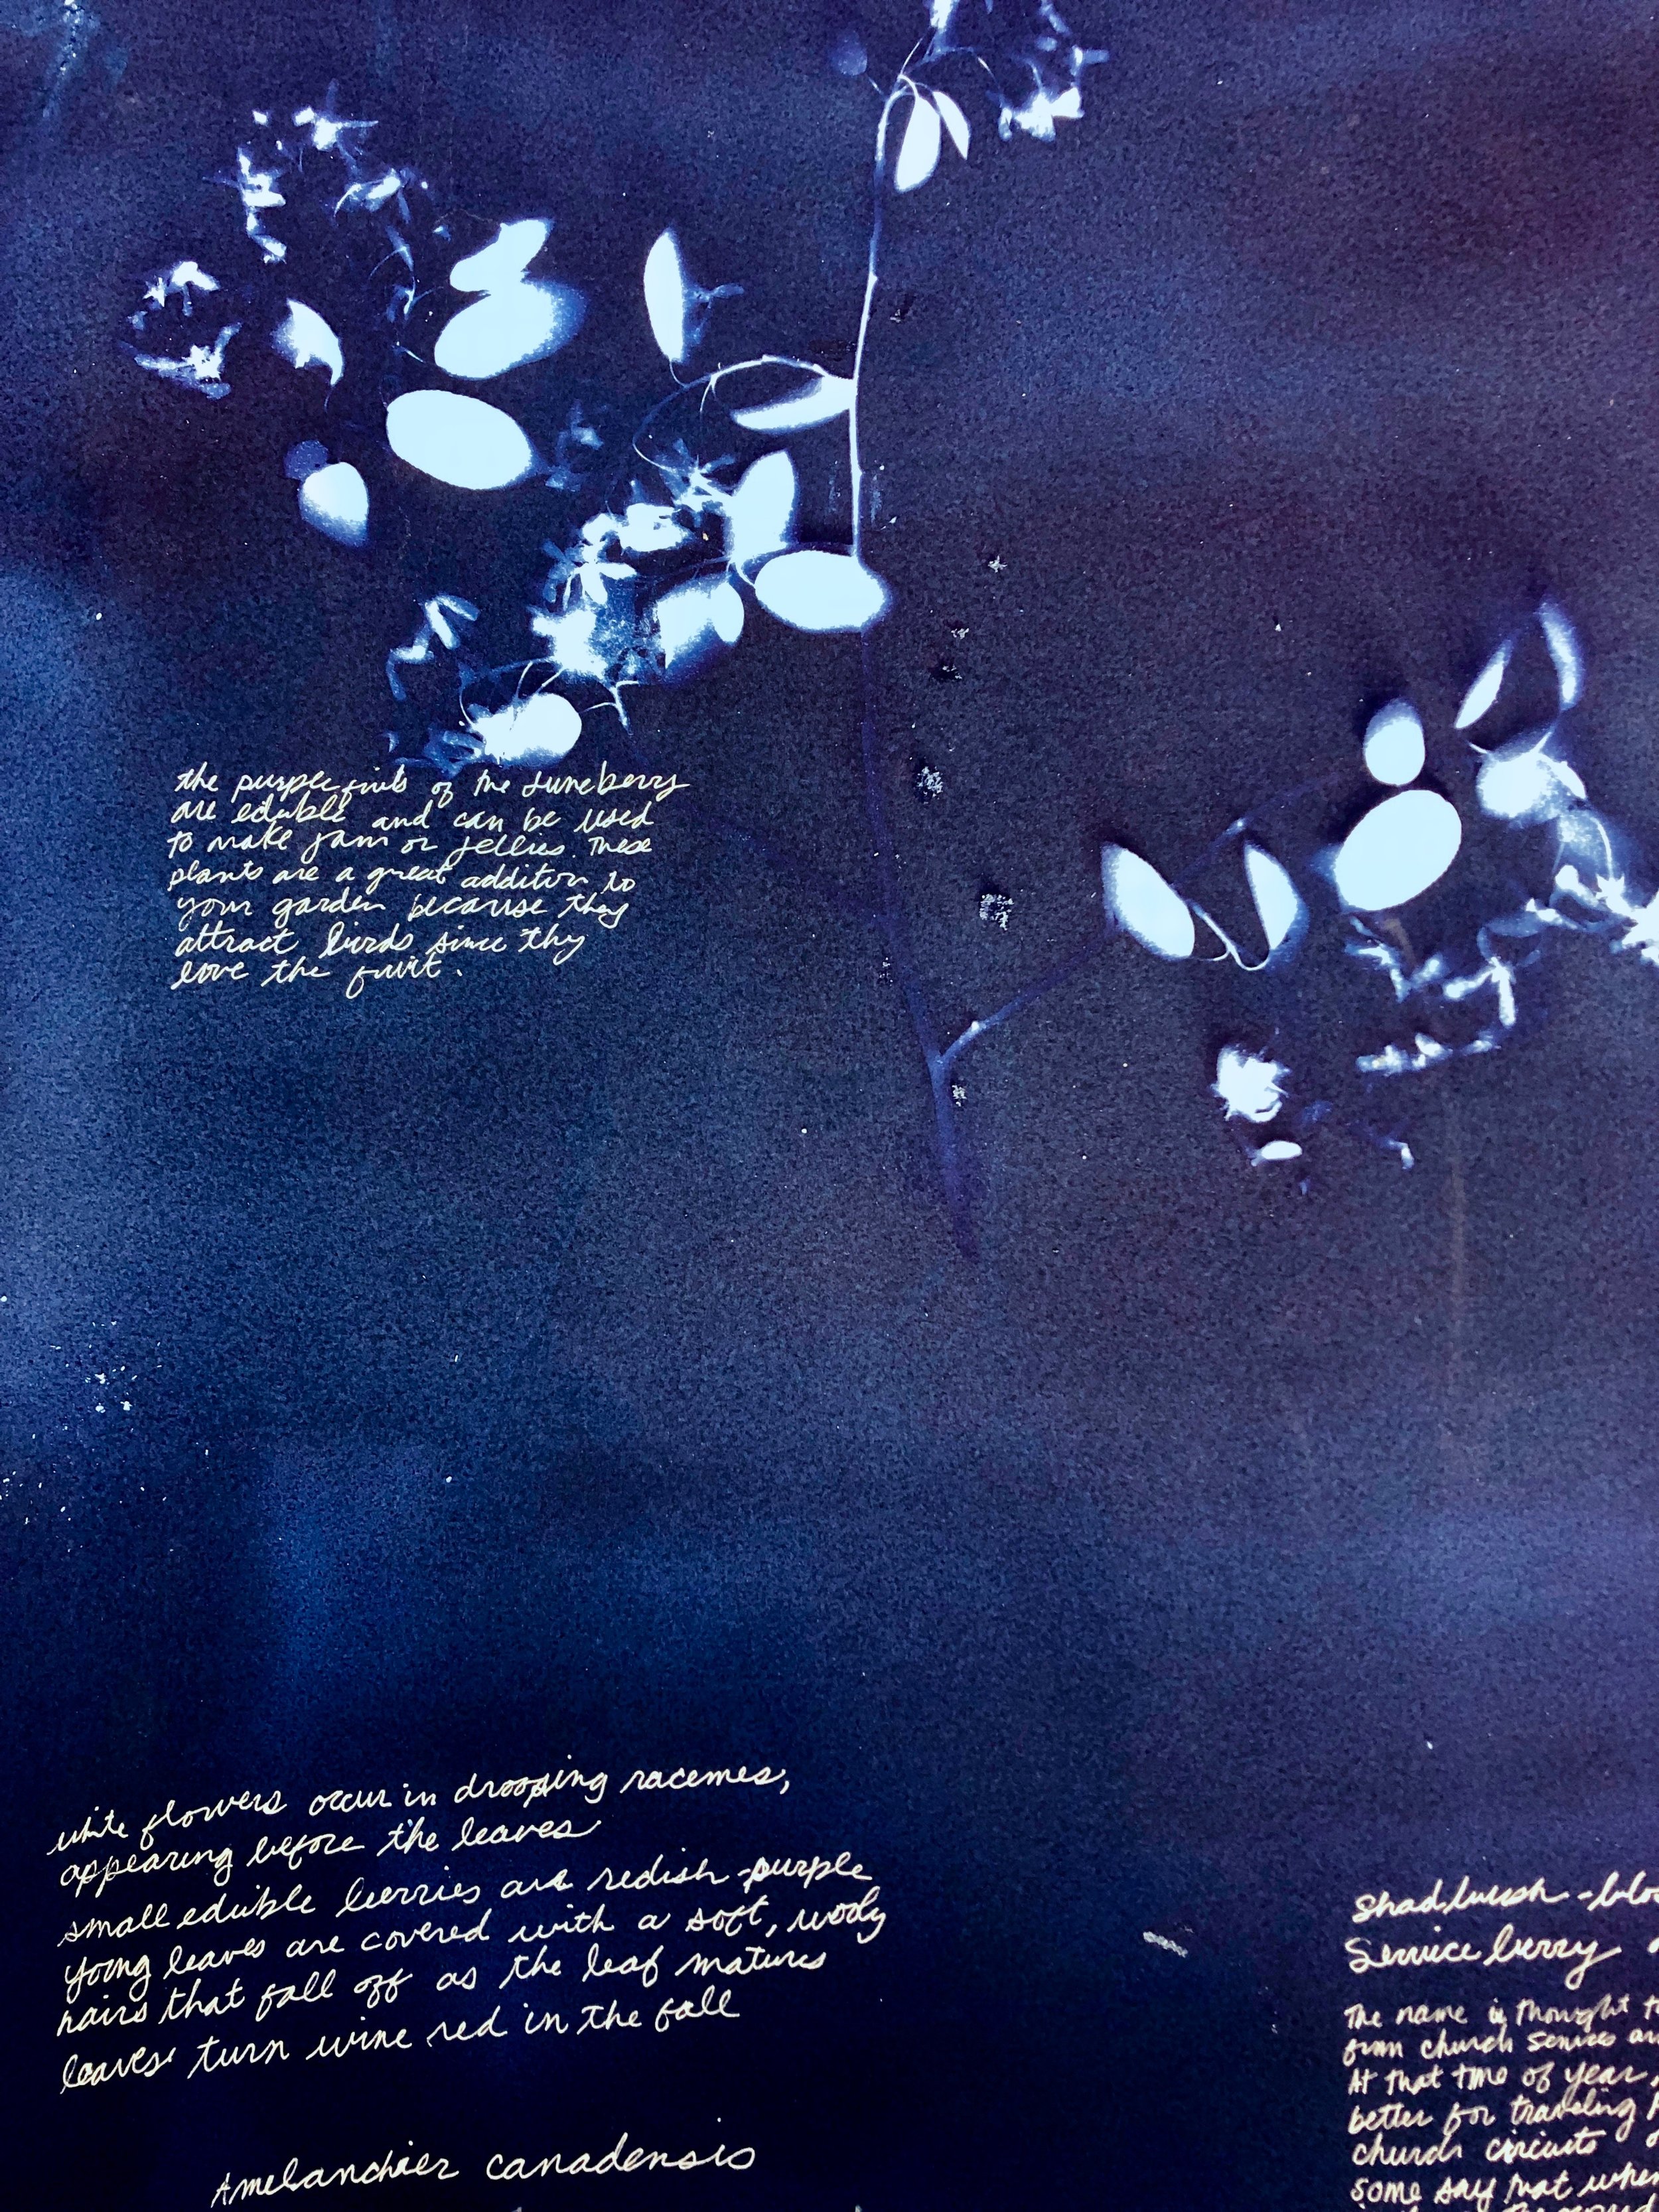 the purple fruits of the Juneberry
are eduble and can be used
to make jam or jellies. These
plants are a great addition to
your garden because they
attract birds since thy
love the fruit.
white flowers occur in drooping racemes,
appearing before the leaves
small eduble berries are redish-purple
yong leaves are covered with a soft, wooly
hairs that fall off as the leaf matures
leaves turn wine red in the fall
Amelanchier canadensis
Shadbush - blo
Service berry
The name is thought t
from church services an
At that time of year,
better for traveling
church circuits
some say that when